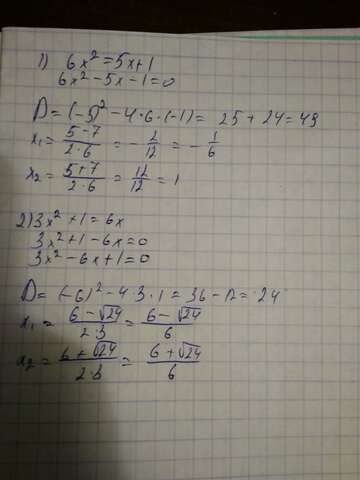 1) 6x² = 5x+1
6x² - 5x - 1 = 0
D = (-5)² - 4·6·(-1) = 25 + 24 = 49
x₁ = (5-7)/(2·6) = -2/12 = -1/6
x₂ = (5+7)/(2·6) = 12/12 = 1
2) 3x² + 1 = 6x
3x² + 1 - 6x = 0
3x² - 6x + 1 = 0
D = (-6)² - 4·3·1 = 36 - 12 = 24
x₁ = (6 - √24)/(2·3) = (6 - √24)/6
x₂ = (6 + √24)/(2·3) = (6 + √24)/6